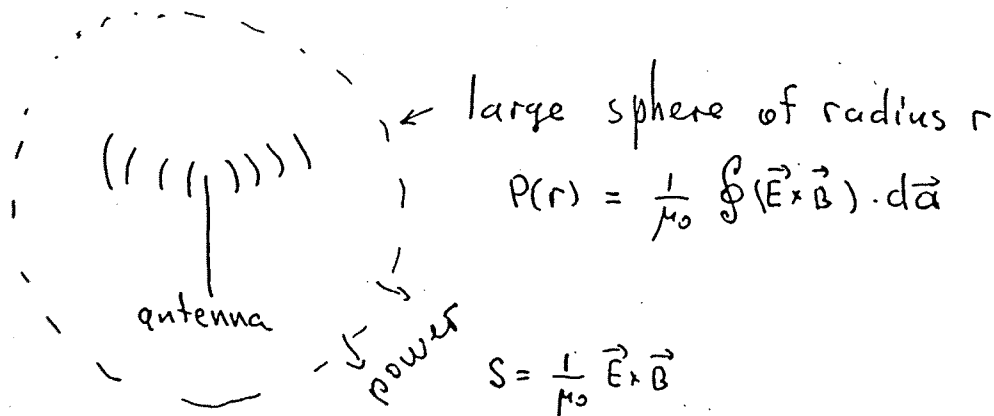 large sphere of radius r
P(r) = 1/μ₀ ∮(E⃗×B⃗)·da⃗
antenna
power
S = 1/μ₀ E⃗×B⃗